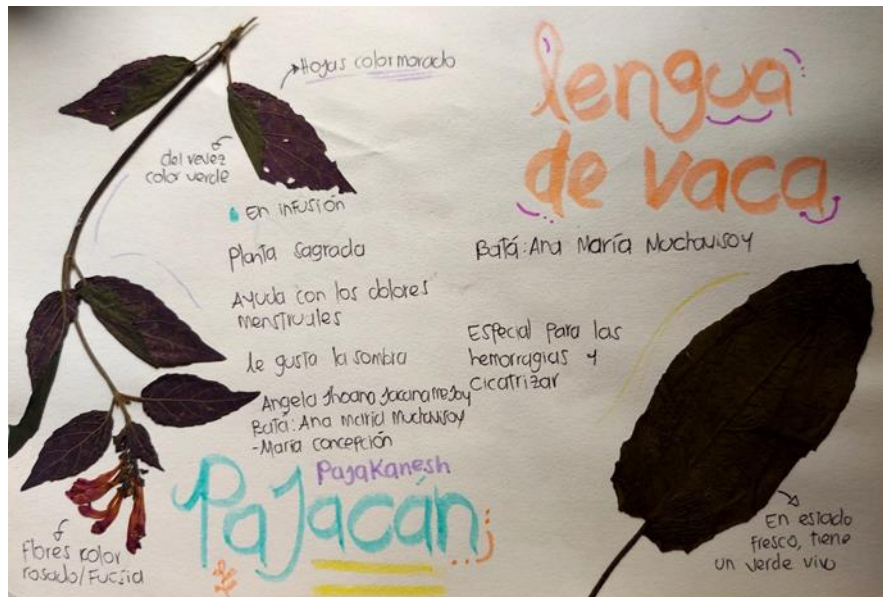 Hojas color morado
del revez
color verde
En infusión
Planta sagrada
Ayuda con los dolores
menstruales
le gusta la sombra
Angela Jhoana Jacanamejoy
Batá: Ana maría Muchavisoy
-María concepción
PajaKanesh
Pajacán
Flores color
rosado/Fucsia
lengua
de vaca
Batá: Ana María Muchavisoy
Especial para las
hemorragias y
cicatrizar
En estado
fresco, tiene
un verde vivo